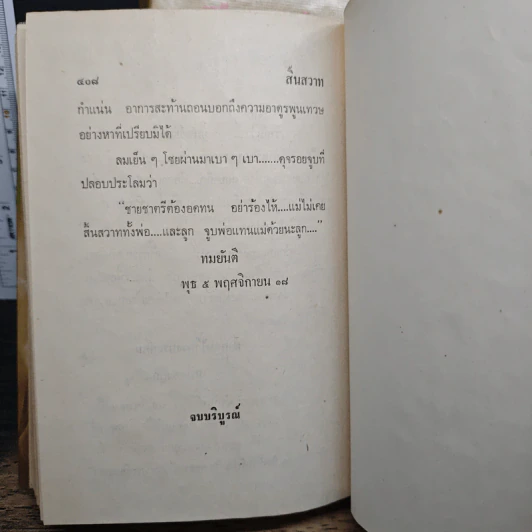 ๔๐๘ สิ้นสวาท
กำแน่น อาการสะท้านถอนบอกถึงความอาดูรพูนเทวษ
อย่างหาที่เปรียบมิได้
ลมเย็น ๆ โชยผ่านมาเบา ๆ เบา.......ดุจรอยจูบที่
ปลอบประโลมว่า
“ชายชาตรีต้องอดทน อย่าร้องไห้....แม่ไม่เคย
สิ้นสวาททั้งพ่อ....และลูก จูบพ่อแทนแม่ด้วยนะลูก....”
ทมยันตี
พุธ ๕ พฤศจิกายน ๑๘
จบบริบูรณ์